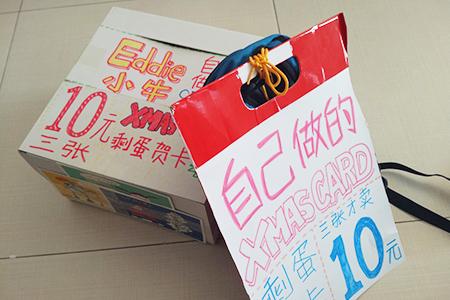 Eddie 自
小牛
10元 XMAS
三张 剩蛋贺卡
自己做的
XMAS CARD
剩蛋 三张才卖
卡 10元